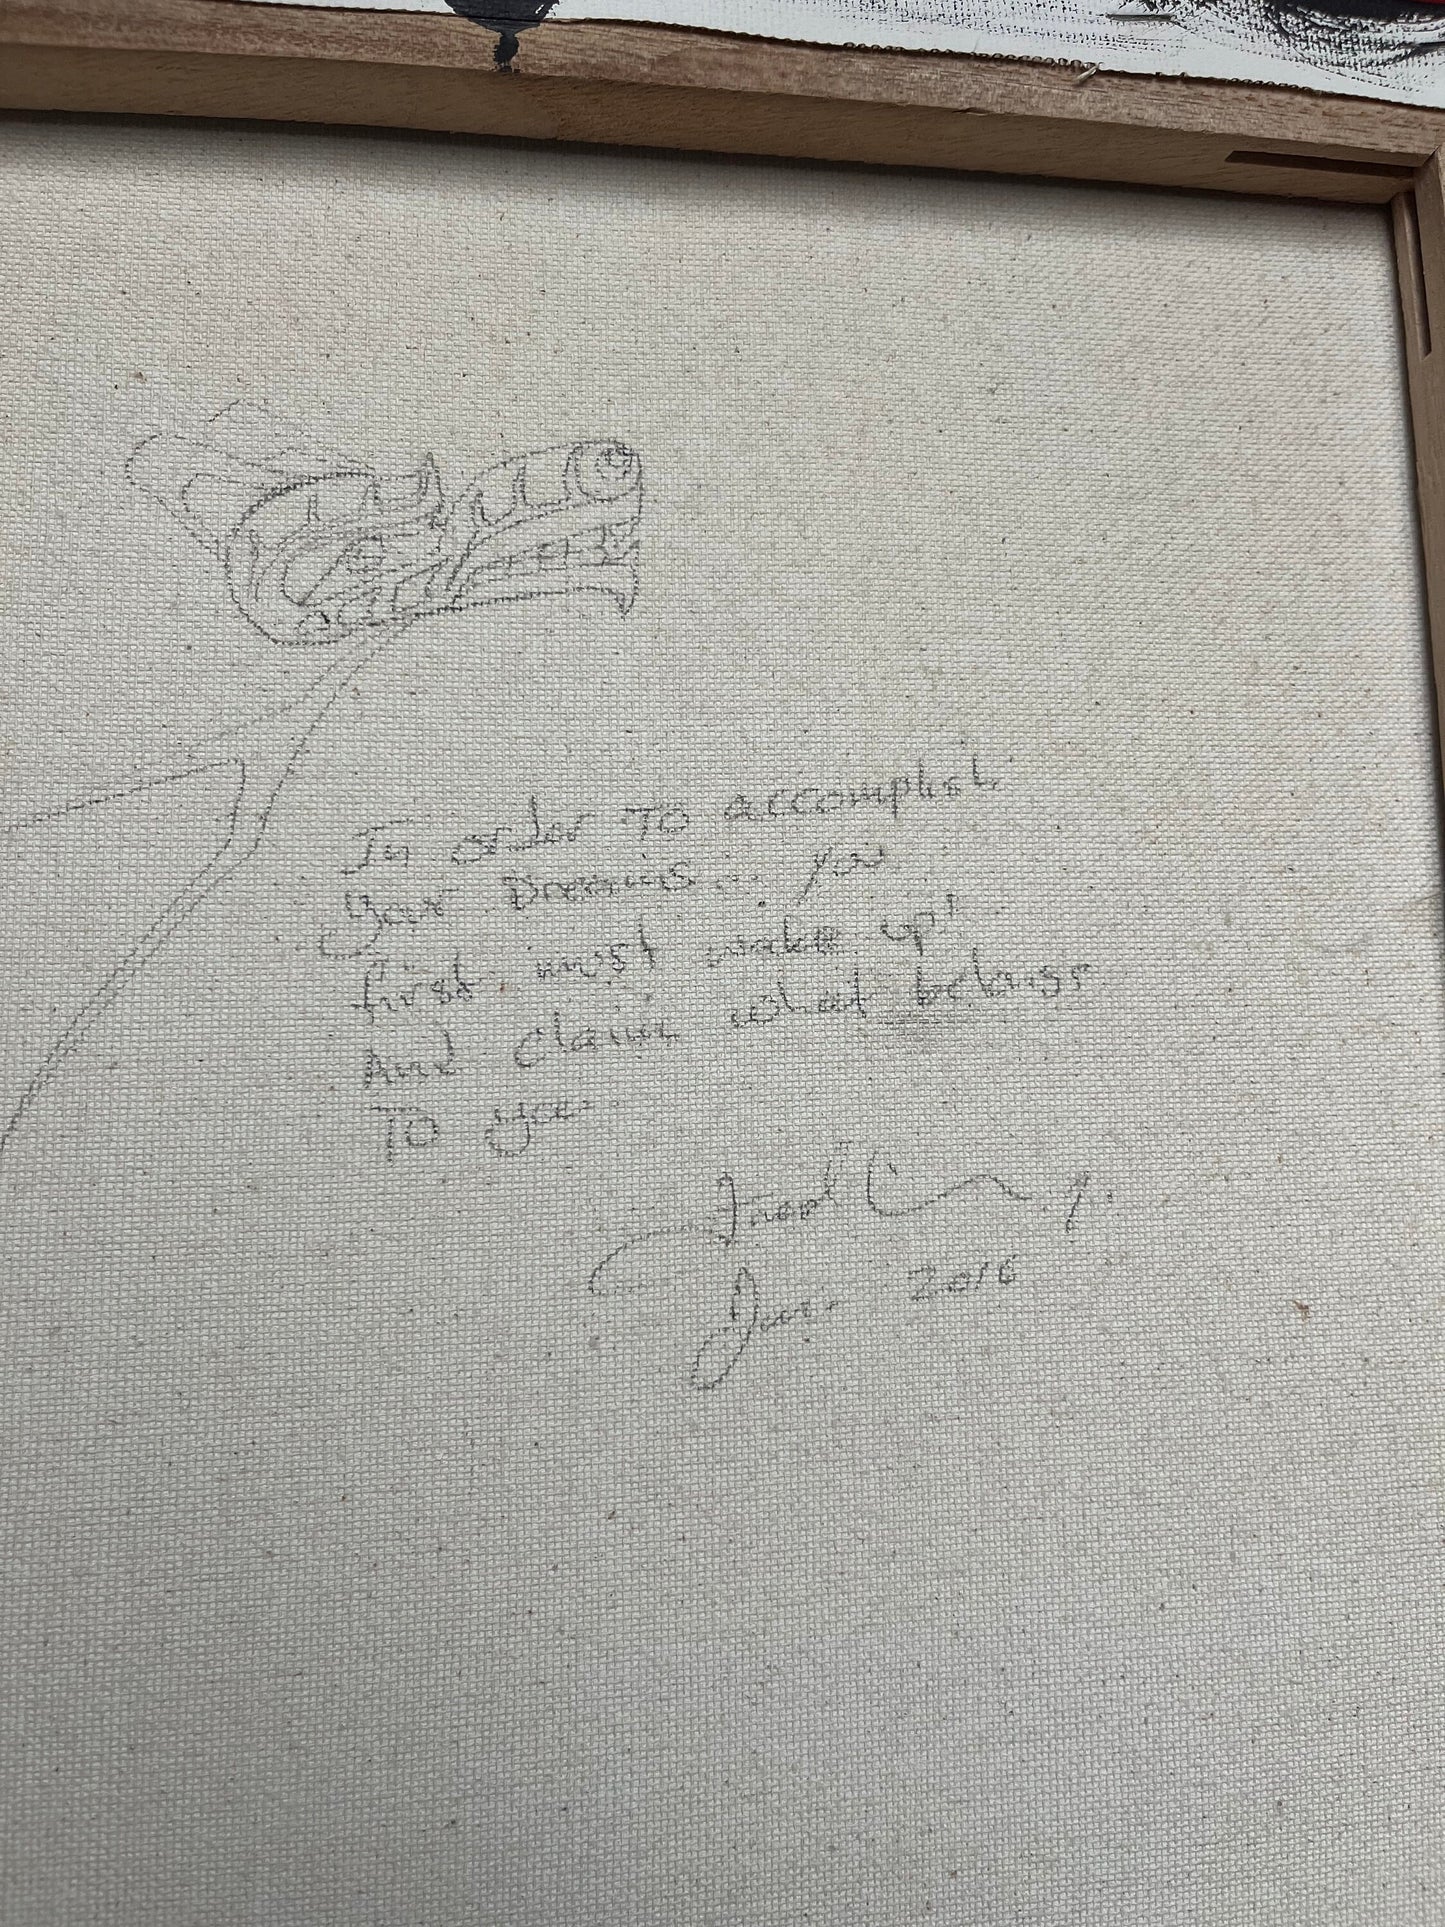 In order TO accomplish
Your Dreams... you
first must wake up!
And claim what belongs
TO you
2016